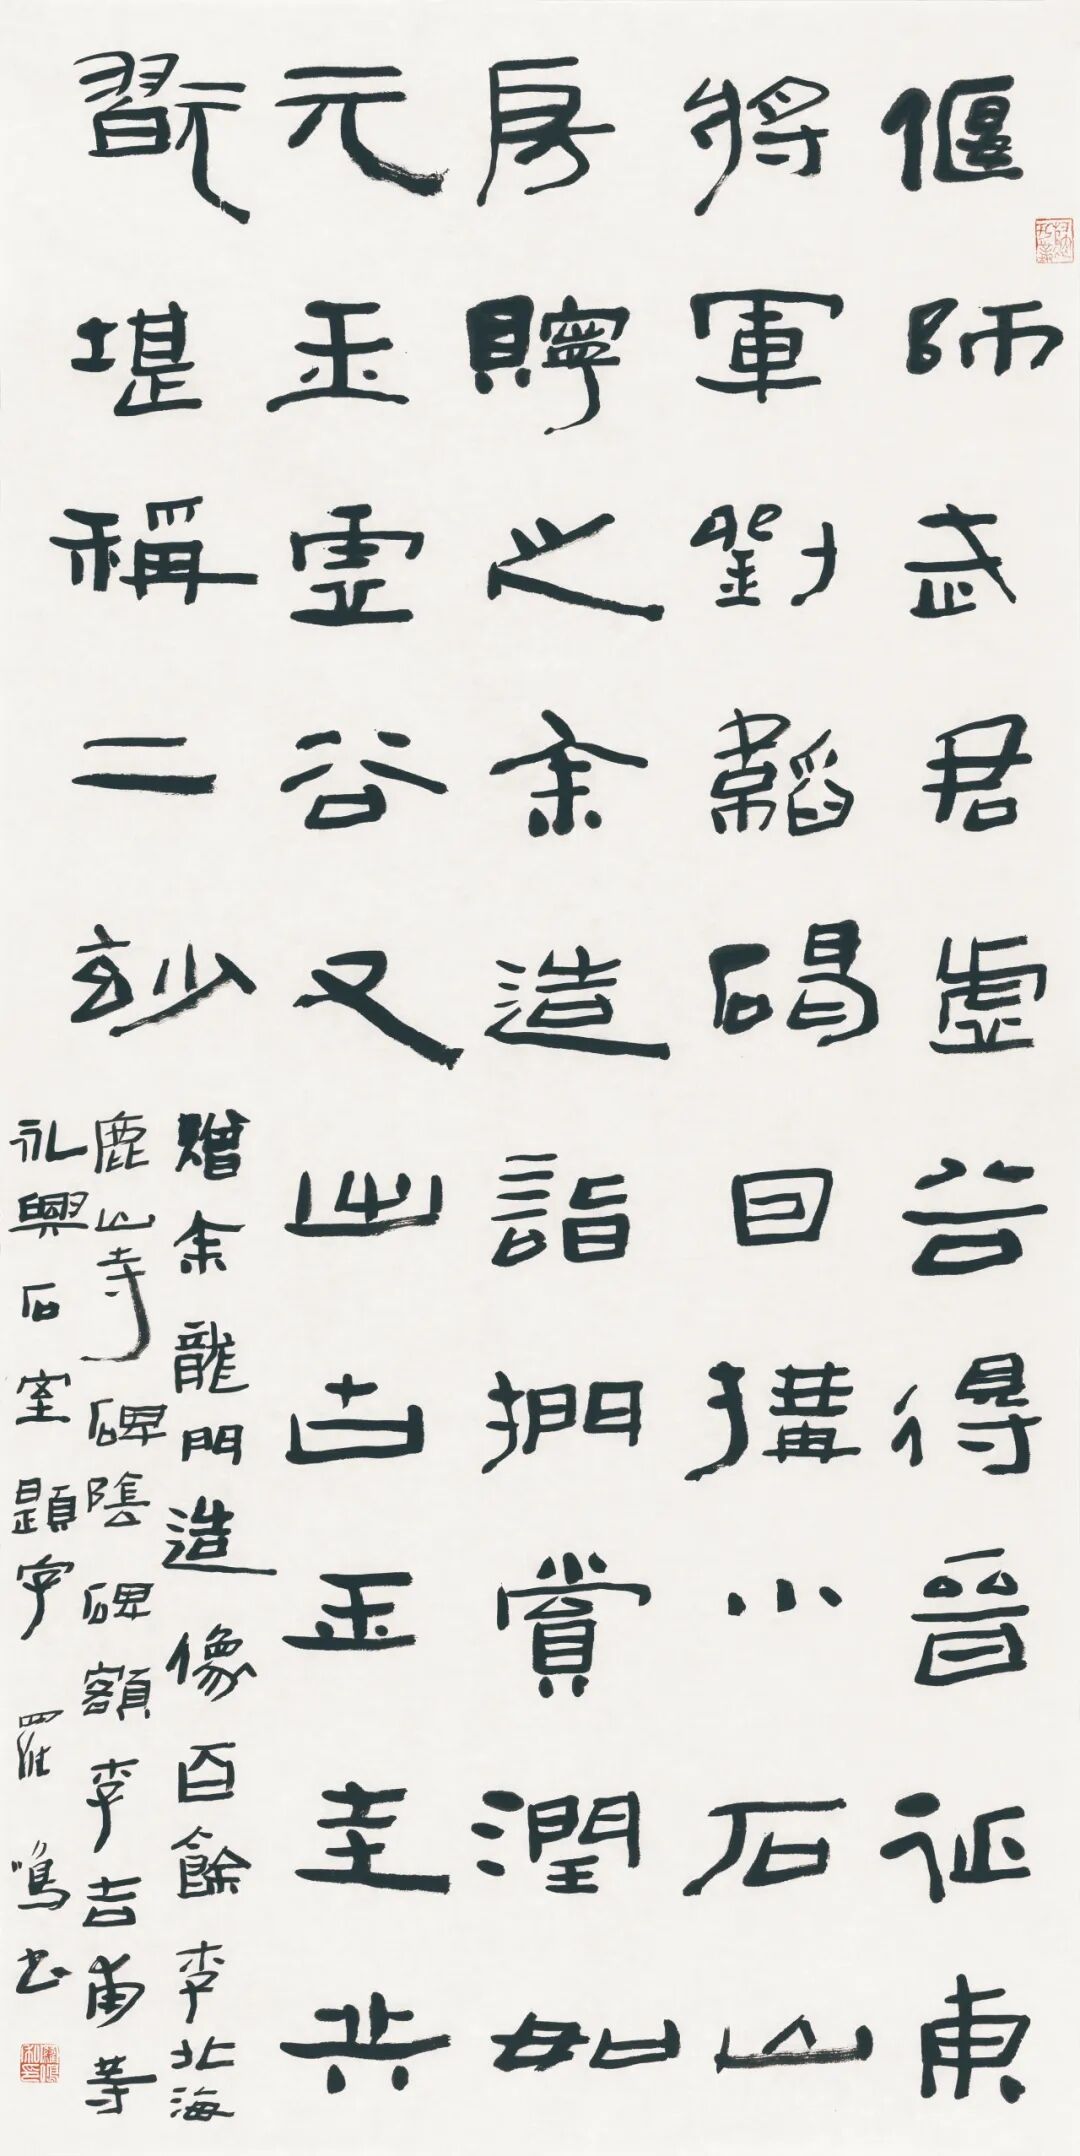 偃師武君虛谷得晉征東
將軍劉韜碣因搆小石山
房貯之余造詣捫賞潤如
元玉虛谷又出古玉圭共
翫堪稱二妙
贈余龍門造像百餘李北海
鹿山寺碑陰碑額李吉甫等
永興石室題字 羅鳴書